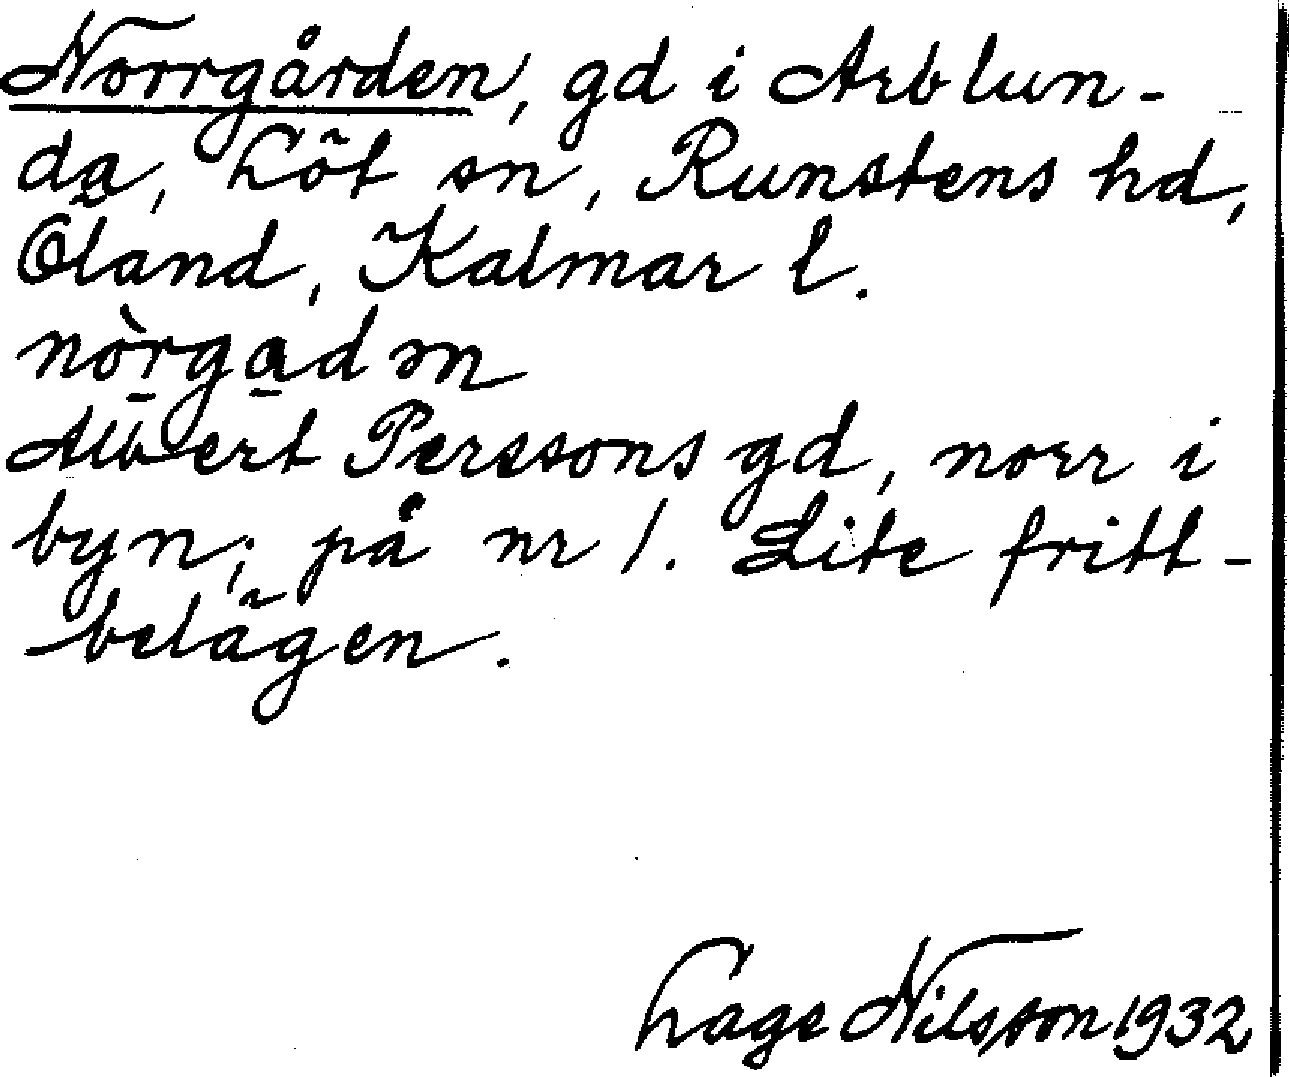 Norrgården, gd i Arblun-
da, Löt sn, Runstens hd,
Öland, Kalmar l.
nòrgadən
Albert Perssons gd, norr i
byn; på nr 1. Lite fritt-
belägen.
Lage Nilsson 1932